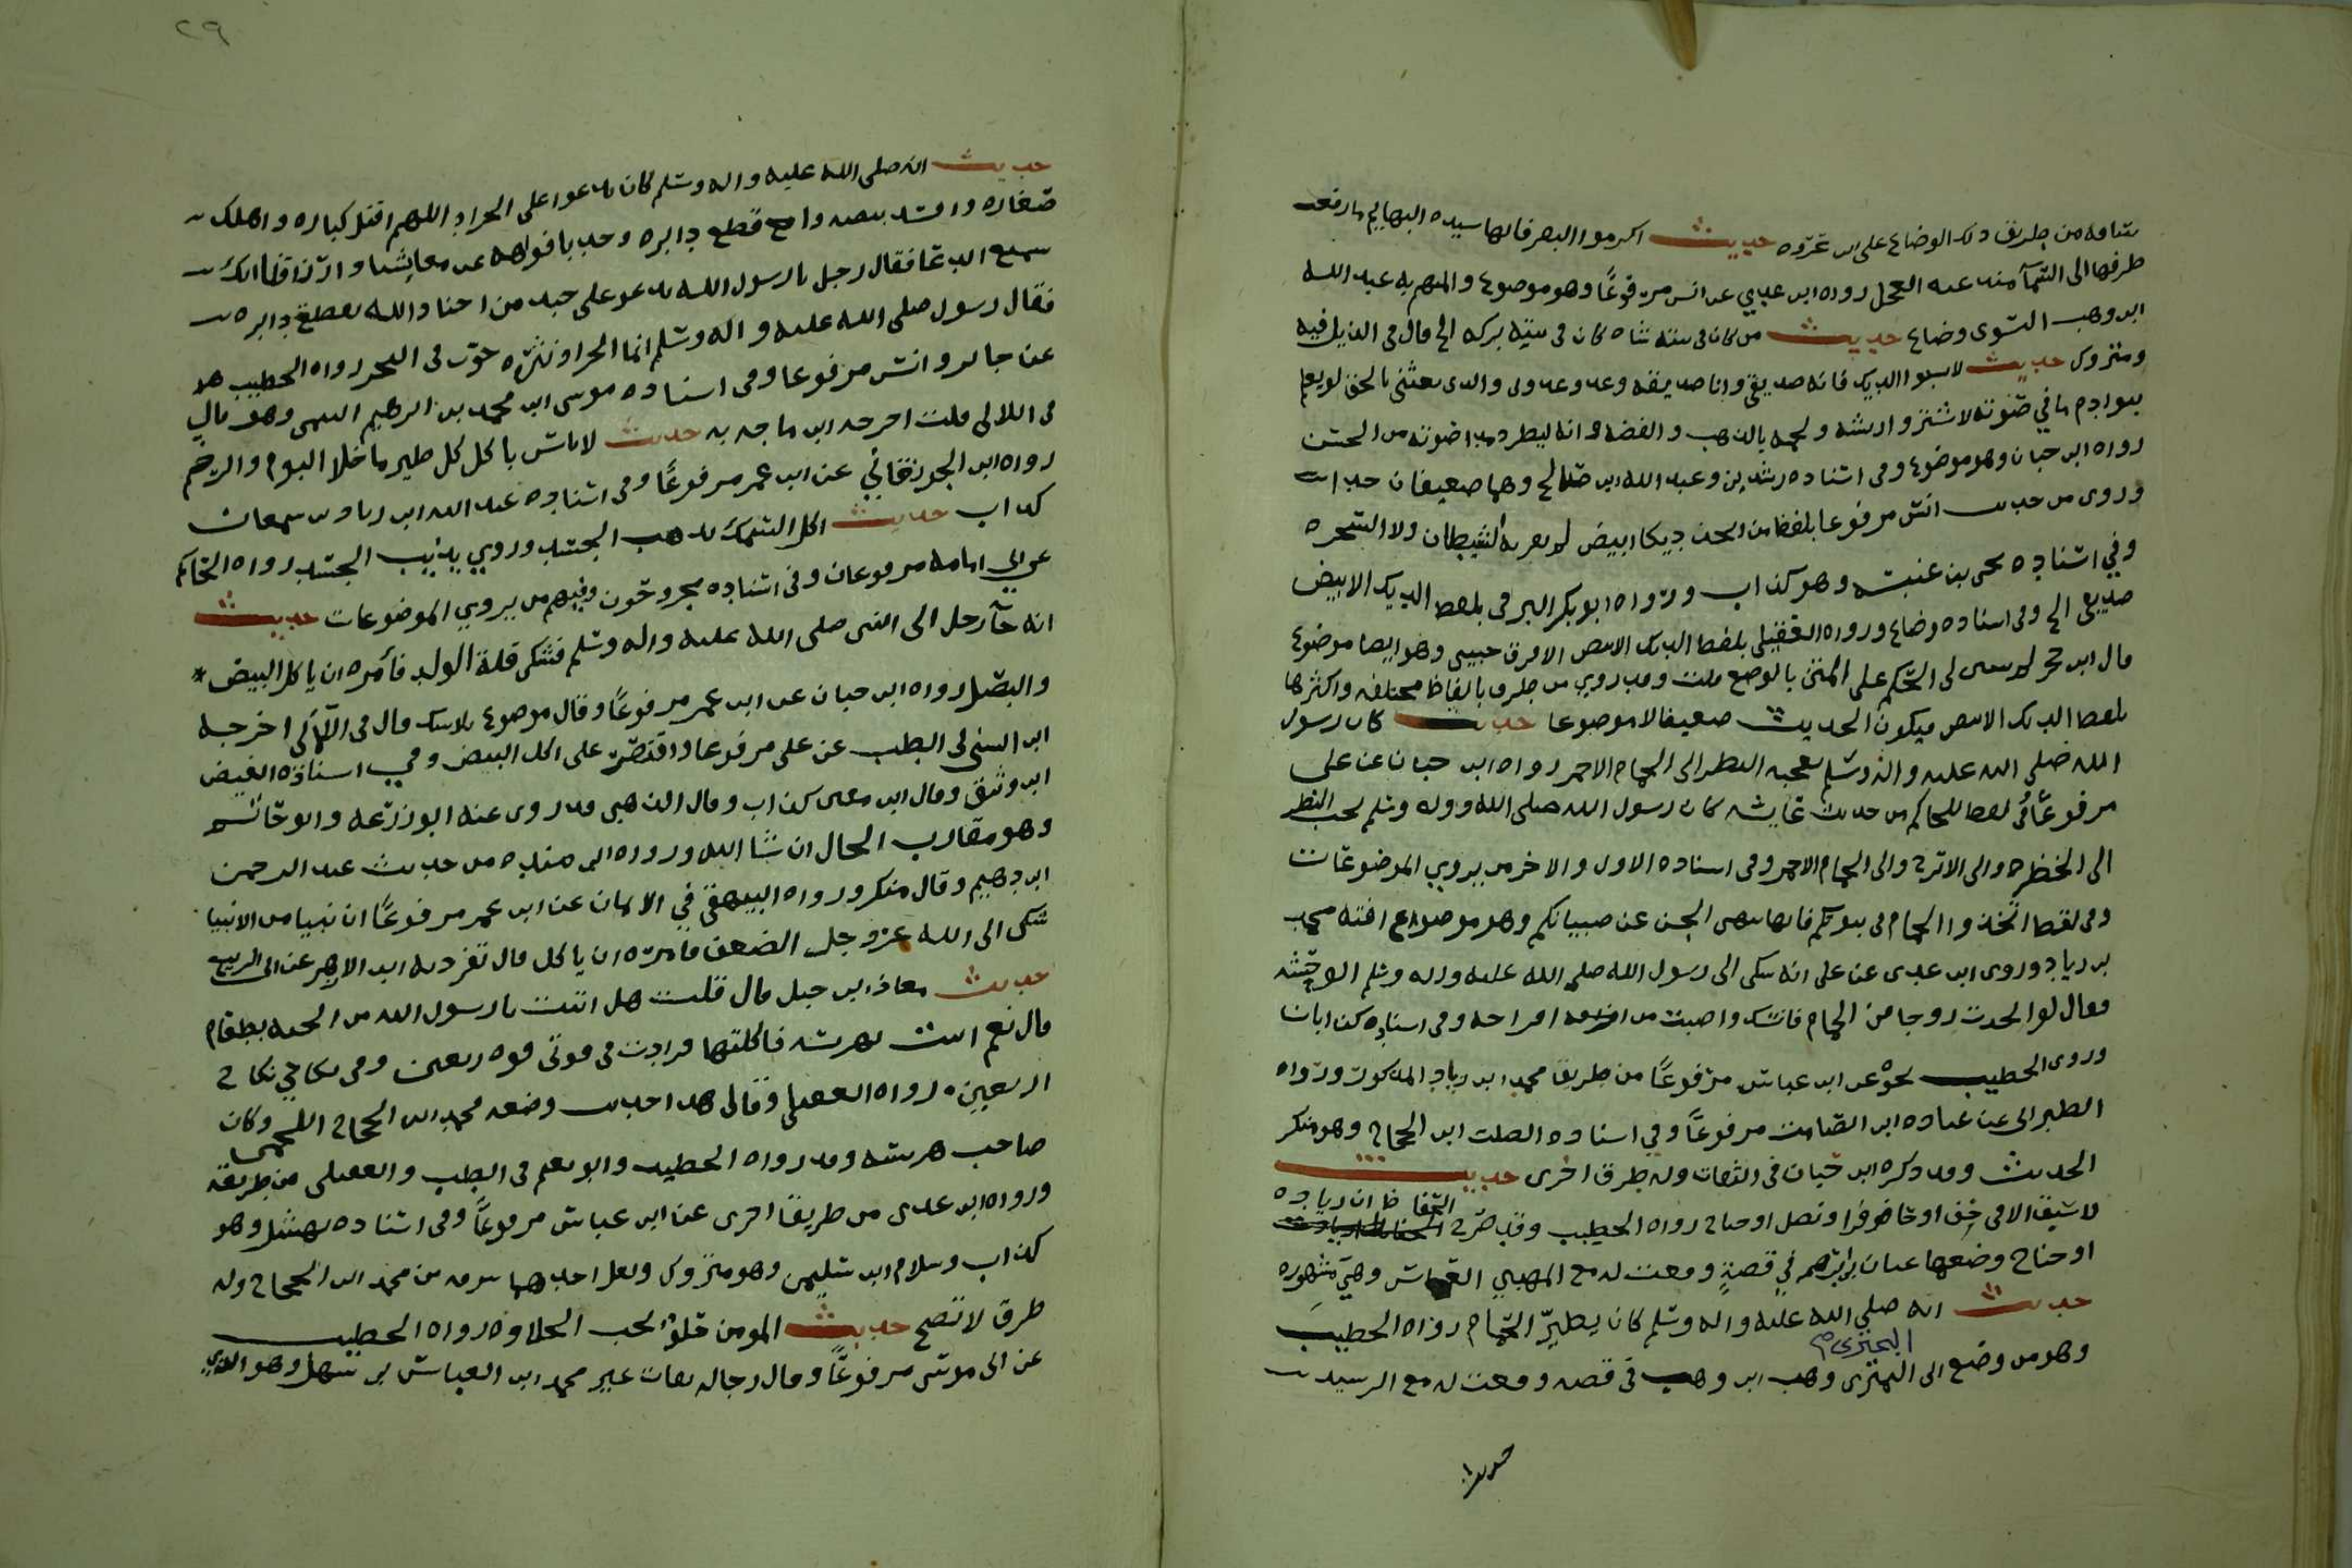 ساقه من طريق ذلك الوضاع على ابن عروه حديث اكرموا البقر فانها سيده البهايم ما رفعت
طرفها الى السمآ منذ عبد العجل رواه ابن عدي عن انس مرفوعًا وهو موضوع والمتهم به عبد الله
ابن وهب النسوى وضاع حديث من كان في بيته شاه كان في بيته بركه الخ قال في الذيل فيه
ومتروك حديث لا تسبوا الديك فانه صديقي وانا صديقه وعدوه عدوى والذى بعثنى بالحق لو يعلم
بنو ادم ما في صوته لاشتروا ريشه ولحمه بالذهب والفضه وانه ليطرد مدا صوته من الجن
رواه ابن حبان وهو موضوع وفي اسناده رشدين وعبد الله ابن صالح وهما ضعيفان جدا
وروى من حديث انس مرفوعا بلفظ من اتخذ ديكا ابيض لم يقربه الشيطان ولا السحره
وفي اسناده يحيى بن عنبسه وهو كذاب ورواه ابو بكر البرقى بلفظ الديك الابيض
صديقى الخ وفى اسناده وضاع ورواه العقيلي بلفظ الديك الابيض الافرق حبيبى وهو ايضا موضوع
قال ابن حجر لم يتبين لى الحكم على المتن بالوضع قلت وقد روي من طرق بالفاظ مختلفه واكثرها
بلفظ الديك الابيض فيكون الحديث ضعيفا لا موضوعا حديث كان رسول
الله صلى الله عليه واله وسلم يعجبه النظر الى الحمام الاحمر رواه ابن حبان عن على
مرفوعًا وفي لفظ للحاكم من حديث عايشه كان رسول الله صلى الله و وله وسلم يحب النظر
الى الخضره والى الاترج والى الحمام الاحمر وفى اسناده الاول والاخر من يروي الموضوعات
وفى لفظ اتخذوا الحمام في بيوتكم فانها تلهى الجن عن صبيانكم وهو موضوع افته محمد
بن زياد وروى ابن عدى عن على انه شكى الى رسول الله صلى الله عليه وله وسلم الوحشه
فقال لو اتخذت زوجا من الحمام فانسك واصبت من افراخه وفى اسناده كذابان
وروى الخطيب نحوه عن ابن عباس مرفوعًا من طريق محمد ابن زياد المذكور ورواه
الطبرانى عن عباده ابن الصامت مرفوعًا وفي اسناده الصلت ابن الحجاج وهو منكر
الحديث وقد ذكره ابن حبان في الثقات وله طرق اخرى حديث
لا سبق الا في خف او حافر او نصل او جناح رواه الخطيب وقد صرح الحفاظ ان زياده
او جناح وضعها غياث ابن ابراهيم في قصةٍ وقعت له مع المهدي العباس وهى مشهوره
حديث انه صلى الله عليه واله وسلم كان يطيّر الحمام رواه الخطيب
البخترى
وهو من وضع ابى البخترى وهب ابن وهب في قصه وقعت له مع الرشيد
حديث
٢٩
حديث انه صلى الله عليه واله وسلم كان يدعوا على الجراد اللهم اقتل كباره واهلك
صغاره وافسد بيضه واقطع دابره وخذ بافواهه عن معايشنا وارزاقنا انك
سميع الدعا فقال رجل يا رسول الله تدعو على جند من اجناد الله بقطع دابره
فقال رسول صلى الله عليه واله وسلم انما الجراد نثره حوت في البحر رواه الخطيب
عن جابر وانس مرفوعا وفى اسناده موسى ابن محمد بن ابراهيم التيمى وهو
فى اللالى قلت اخرجه ابن ماجه به حديث لا باس باكل كل طير ما خلا البوم والرخم
رواه ابن الجوزقاني عن ابن عمر مرفوعًا وفى اسناده عبد الله ابن زياد بن سمعان
كذاب حديث اكل السمك يذهب الجسد وروي يذيب الجسد رواه الحاكم
عن ابي امامه مرفوعان وفى اسناده مجروحون وفيهم من يروي الموضوعات حديث
انه جآ رجل الى النبى صلى الله عليه واله وسلم فشكى قلة الولد فأمره ان ياكل البيض
والبصل رواه ابن حبان عن ابن عمر مرفوعًا وقال موضوع بلا شك قال فى اللآلى اخرجه
ابن السنى فى الطب عن على مرفوعا واقتصر على اكل البيض وفي اسناده الفيض
ابن وثيق وقال ابن معين كذاب وقال الذهبى قد روى عنه ابو زرعه وابو حاتم
وهو مقارب الحال ان شا الله ورواه ابن منده من حديث عبد الرحمن
ابن دهيم وقال منكر ورواه البيهقي في الايمان عن ابن عمر مرفوعًا ان نبيا من الانبيا
شكى الى الله عزوجل الضعف فامره ان ياكل قال تفرد به ابن الازهر عن ابى الربيع
حديث معاذ ابن جبل قال قلت هل اتيت يا رسول الله من الجنه بطعام
قال نعم اتيت بهريسه فاكلتها فزادت في قوتى قوه اربعين وفى نكاحي نكاح
اربعين رواه العقيلى وقال هذا حديث وضعه محمد ابن الحجاج اللخمى وكان
صاحب هريسه وقد رواه الخطيب وابو نعيم في الطب والعقيلى من طريقه
ورواه ابن عدى من طريق اخرى عن ابن عباس مرفوعًا وفى اسناده نهشل وهو
كذاب وسلام ابن سليمن وهو متروك ولعل احدهما سرقه من محمد ابن الحجاج وله
طرق لا تصح حديث المومن حلو يحب الحلاوه رواه الخطيب
عن ابى موسى مرفوعًا وقال رجاله ثقات غير محمد ابن العباس بن سهل وهو الذي